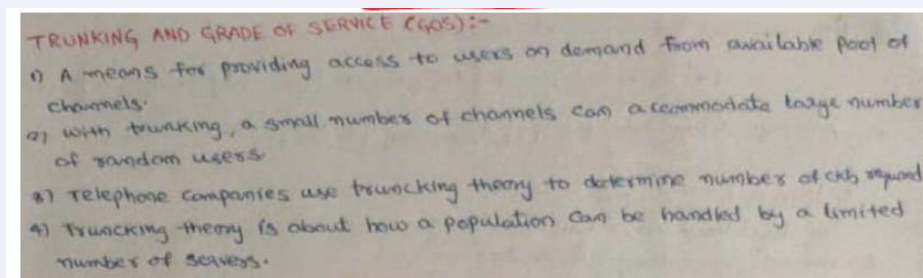 TRUNKING AND GRADE OF SERVICE (GOS):-
1) A means for providing access to users on demand from available pool of
channels.
2) With trunking, a small number of channels can accommodate large number
of random users.
3) Telephone companies use truncking theory to determine number of ckts required
4) Truncking theory is about how a population can be handled by a limited
number of servers.